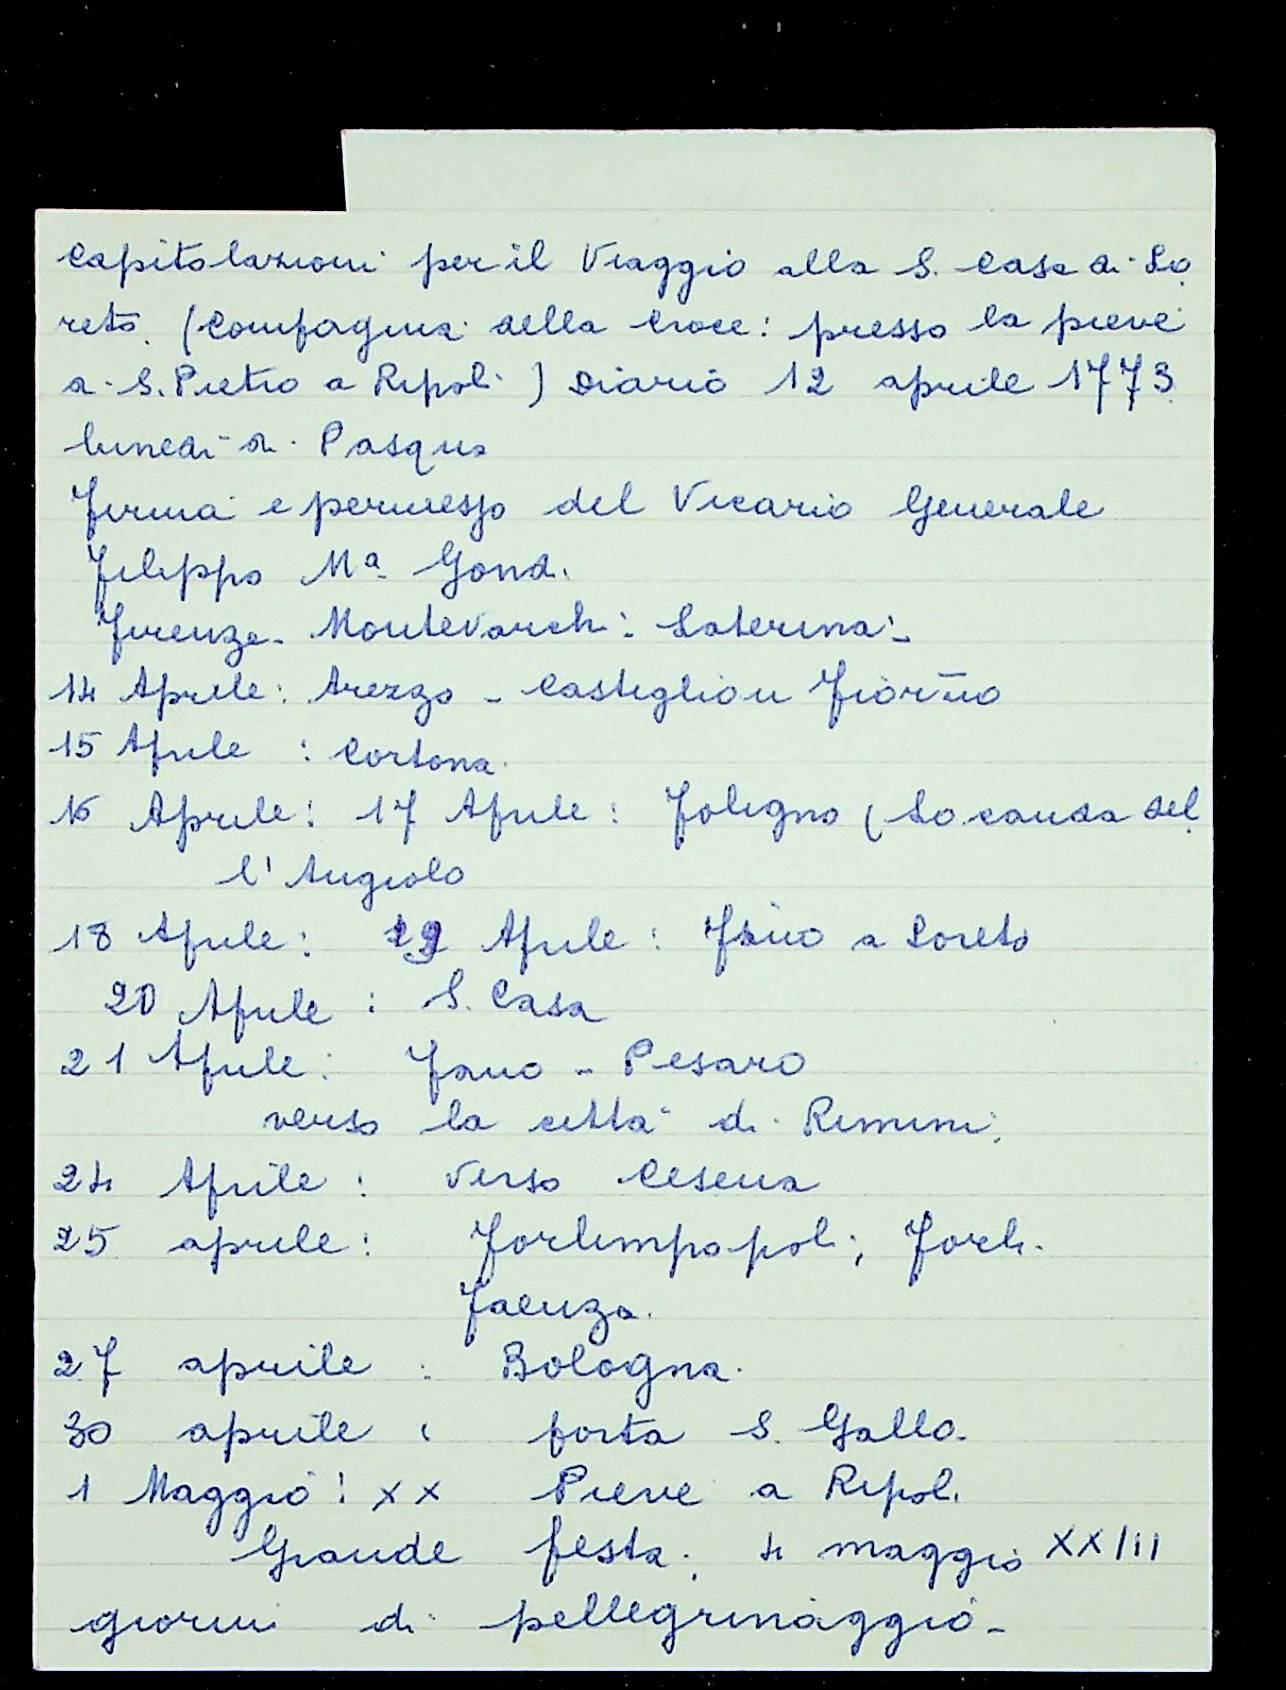 Capitolazioni per il Viaggio alla S. Casa di Lo
reto. (Compagnia della Croce: presso la pieve
a S. Pietro a Ripoli) Diario 12 aprile 1773
lunedì di Pasqua
Firma e permesso del Vicario Generale
Filippo Mª Gondi.
Firenze - Montevarchi - Laterina -
14 Aprile: Arezzo - Castiglion Fior̄no
15 Aprile : Cortona.
16 Aprile: 17 Aprile: Foligno (Locanda del
l'Angiolo
18 Aprile: 19 Aprile: fino a Loreto
20 Aprile : S. Casa
21 Aprile: Fano - Pesaro
verso la città di Rimini.
24 Aprile : verso Cesena
25 aprile: Forlimpopoli; Forli.
Faenza.
27 aprile : Bologna.
30 aprile : porta S. Gallo.
1 Maggio : XX Pieve a Ripoli
Grande festa. 4 maggio XXIII
giorni di pellegrinaggio -